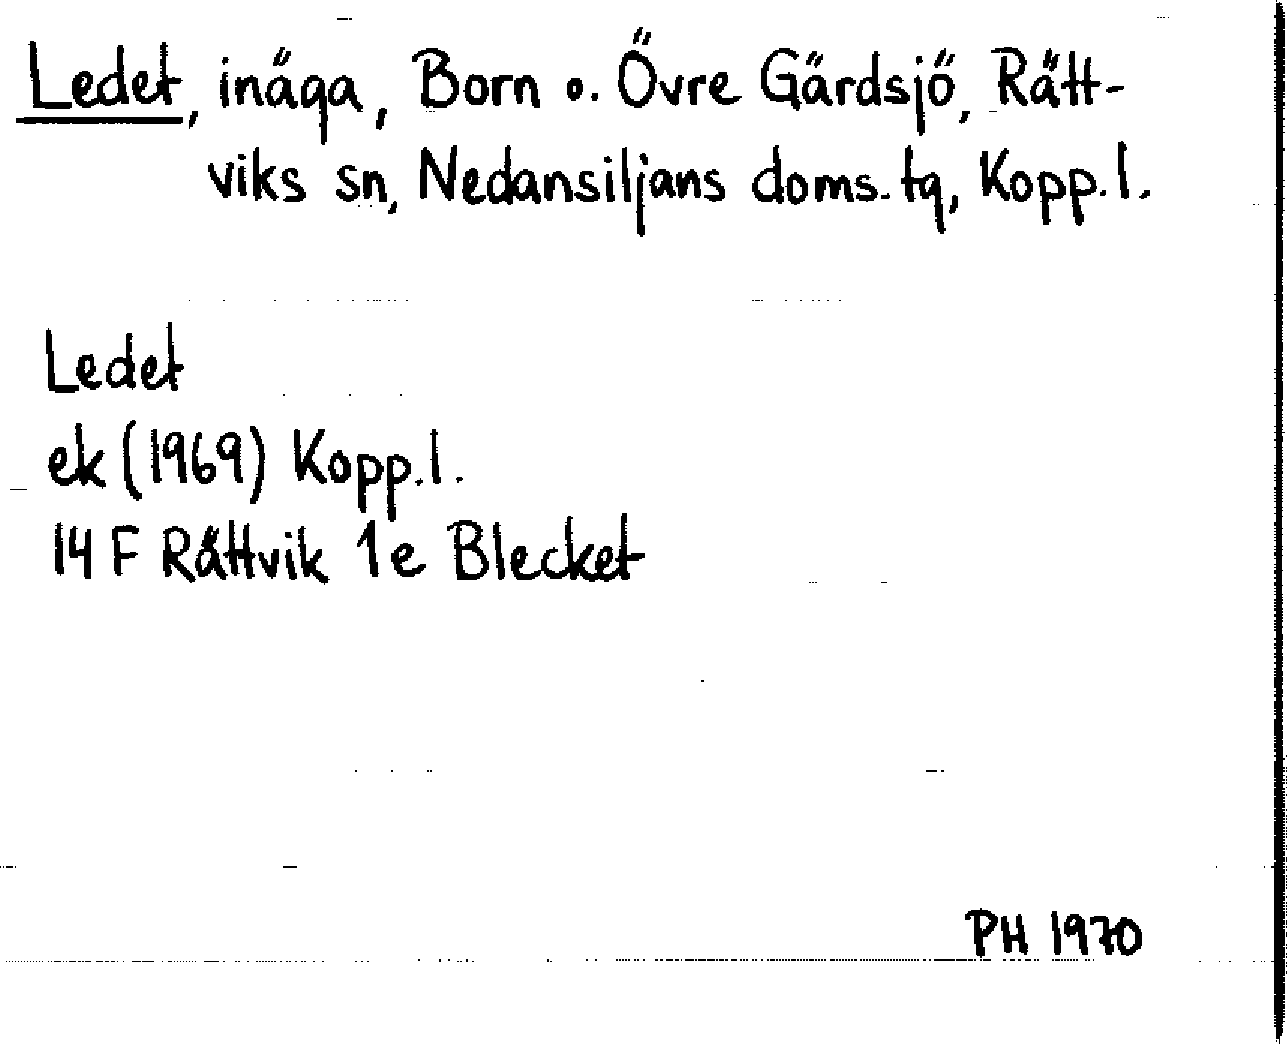 Ledet, inäga, Born o. Övre Gärdsjö, Rätt-
viks sn, Nedansiljans doms. tg, Kopp. l.
Ledet
ek (1969) Kopp. l.
14 F Rättvik 1e Blecket
PH 1970